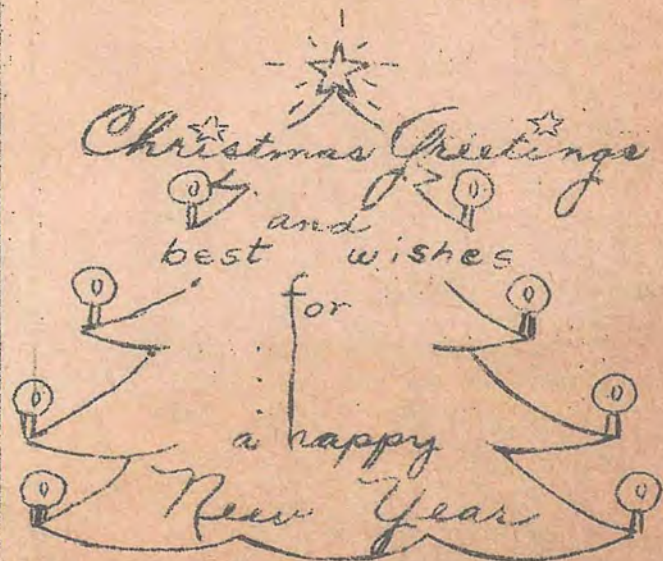 Christmas Greetings
and
best wishes
for
a happy
New Year